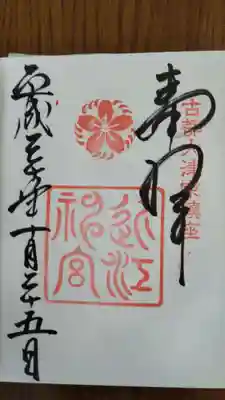 奉拝
古都大津 鎮座
近江
神宮
平成三十年 月二十五日